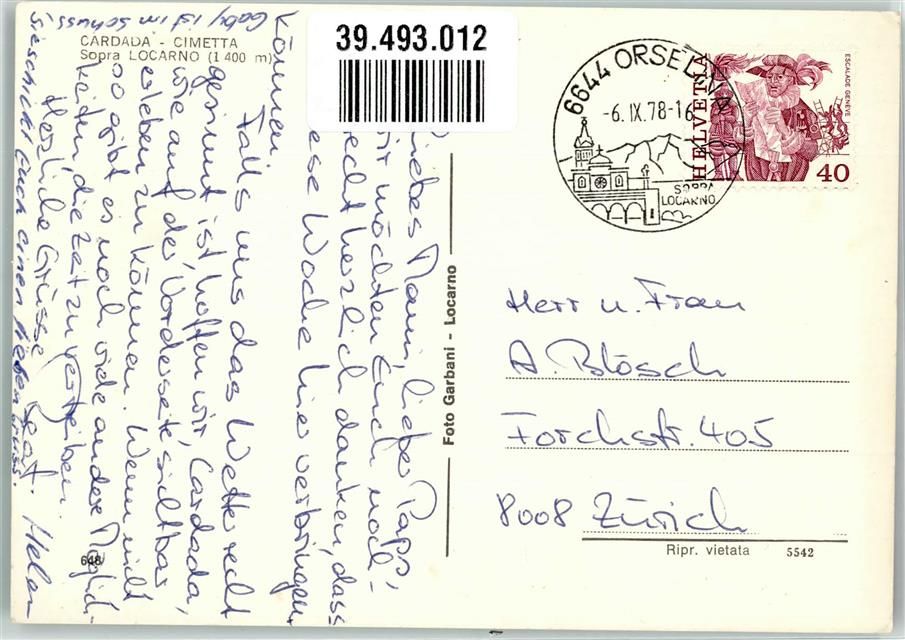 CARDADA - CIMETTA
Sopra LOCARNO (1 400 m)
39.493.012
6644 ORSELINA
-6. IX. 78-16
SOPRA
LOCARNO
HELVETIA
ESCALADE GENÈVE
40
Liebes Mami, lieber Papi,
wir möchten Euch noch-
recht herzlich danken, dass
diese Woche hier verbringen
können.
Falls uns das Wetter recht
gesinnt ist, hoffen wir, Cardada,
wie auf der Vorderseite sichtbar
erleben zu können. Wenn nicht
so gibt es noch viele andere Möglich-
keiten die Zeit zu vertreiben.
Herzliche Grüsse Beat. Helen
Gaby ist im Schuss
sie schickt Euch einen lieben Gruss.
Foto Garbani - Locarno
Herr u. Frau
A. Blösch
Forchstr. 405
8008 Zürich
Ripr. vietata 5542
648